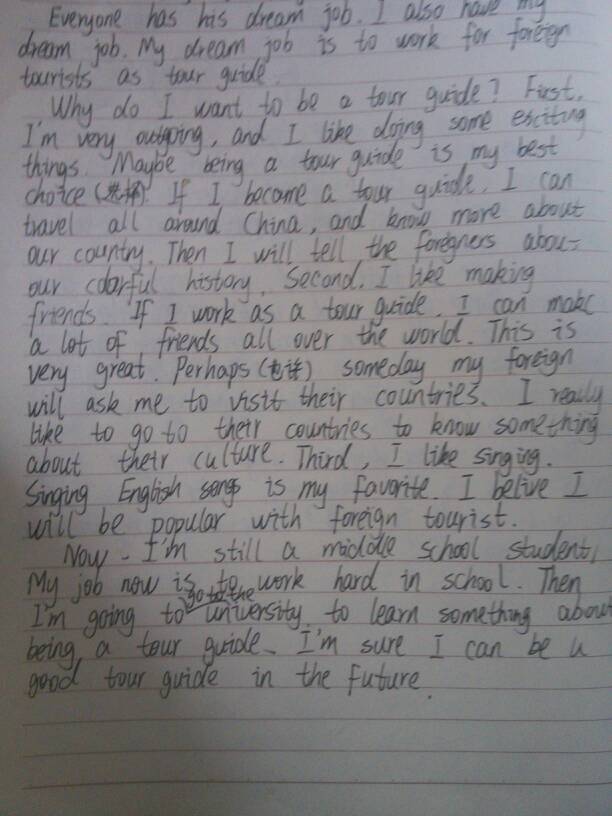 Everyone has his dream job. I also have my
dream job. My dream job is to work for foreign
tourists as tour guide.
Why do I want to be a tour guide? First,
I'm very outgoing, and I like doing some exciting
things. Maybe being a tour guide is my best
choice (选择). If I become a tour guide, I can
travel all around China, and know more about
our country. Then I will tell the foregners about
our colorful history. Second, I like making
friends. If I work as a tour guide, I can make
a lot of friends all over the world. This is
very great. Perhaps (也许) someday my foreign
will ask me to visit their countries. I really
like to go to their countries to know something
about their culture. Third, I like singing.
Singing English songs is my favorite. I belive I
will be popular with foreign tourist.
Now, I'm still a middle school student,
My job now is to work hard in school. Then
I'm going to go to the university to learn something about
being a tour guide. I'm sure I can be a
good tour guide in the future.